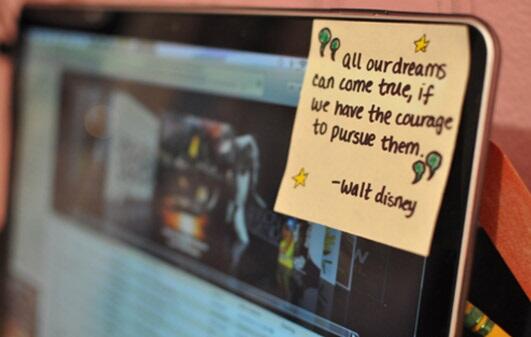 “ all our dreams
can come true, if
we have the courage
to pursue them. ”
-walt disney